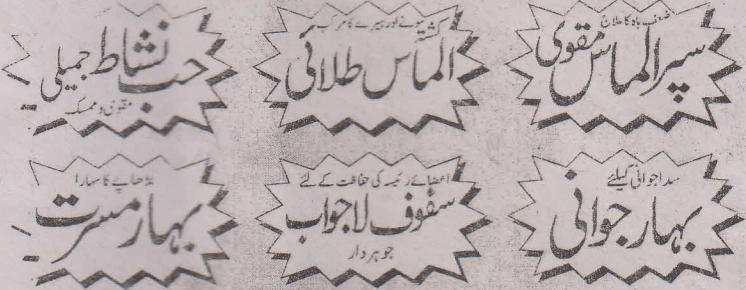 ضعف باہ کا علاج
سپر الماس مقوی
سونے اور ہیرے کا مرکب
کشتہ
الماس طلائی
حب نشاط جمیلی
مقوی و ممسک
سدا جوانی کیلئے
بہار جوانی
اعضائے رئیسہ کی حفاظت کے لئے
سفوف لاجواب
جوہر دار
بڈھاپے کا سہارا
بہار مسرت